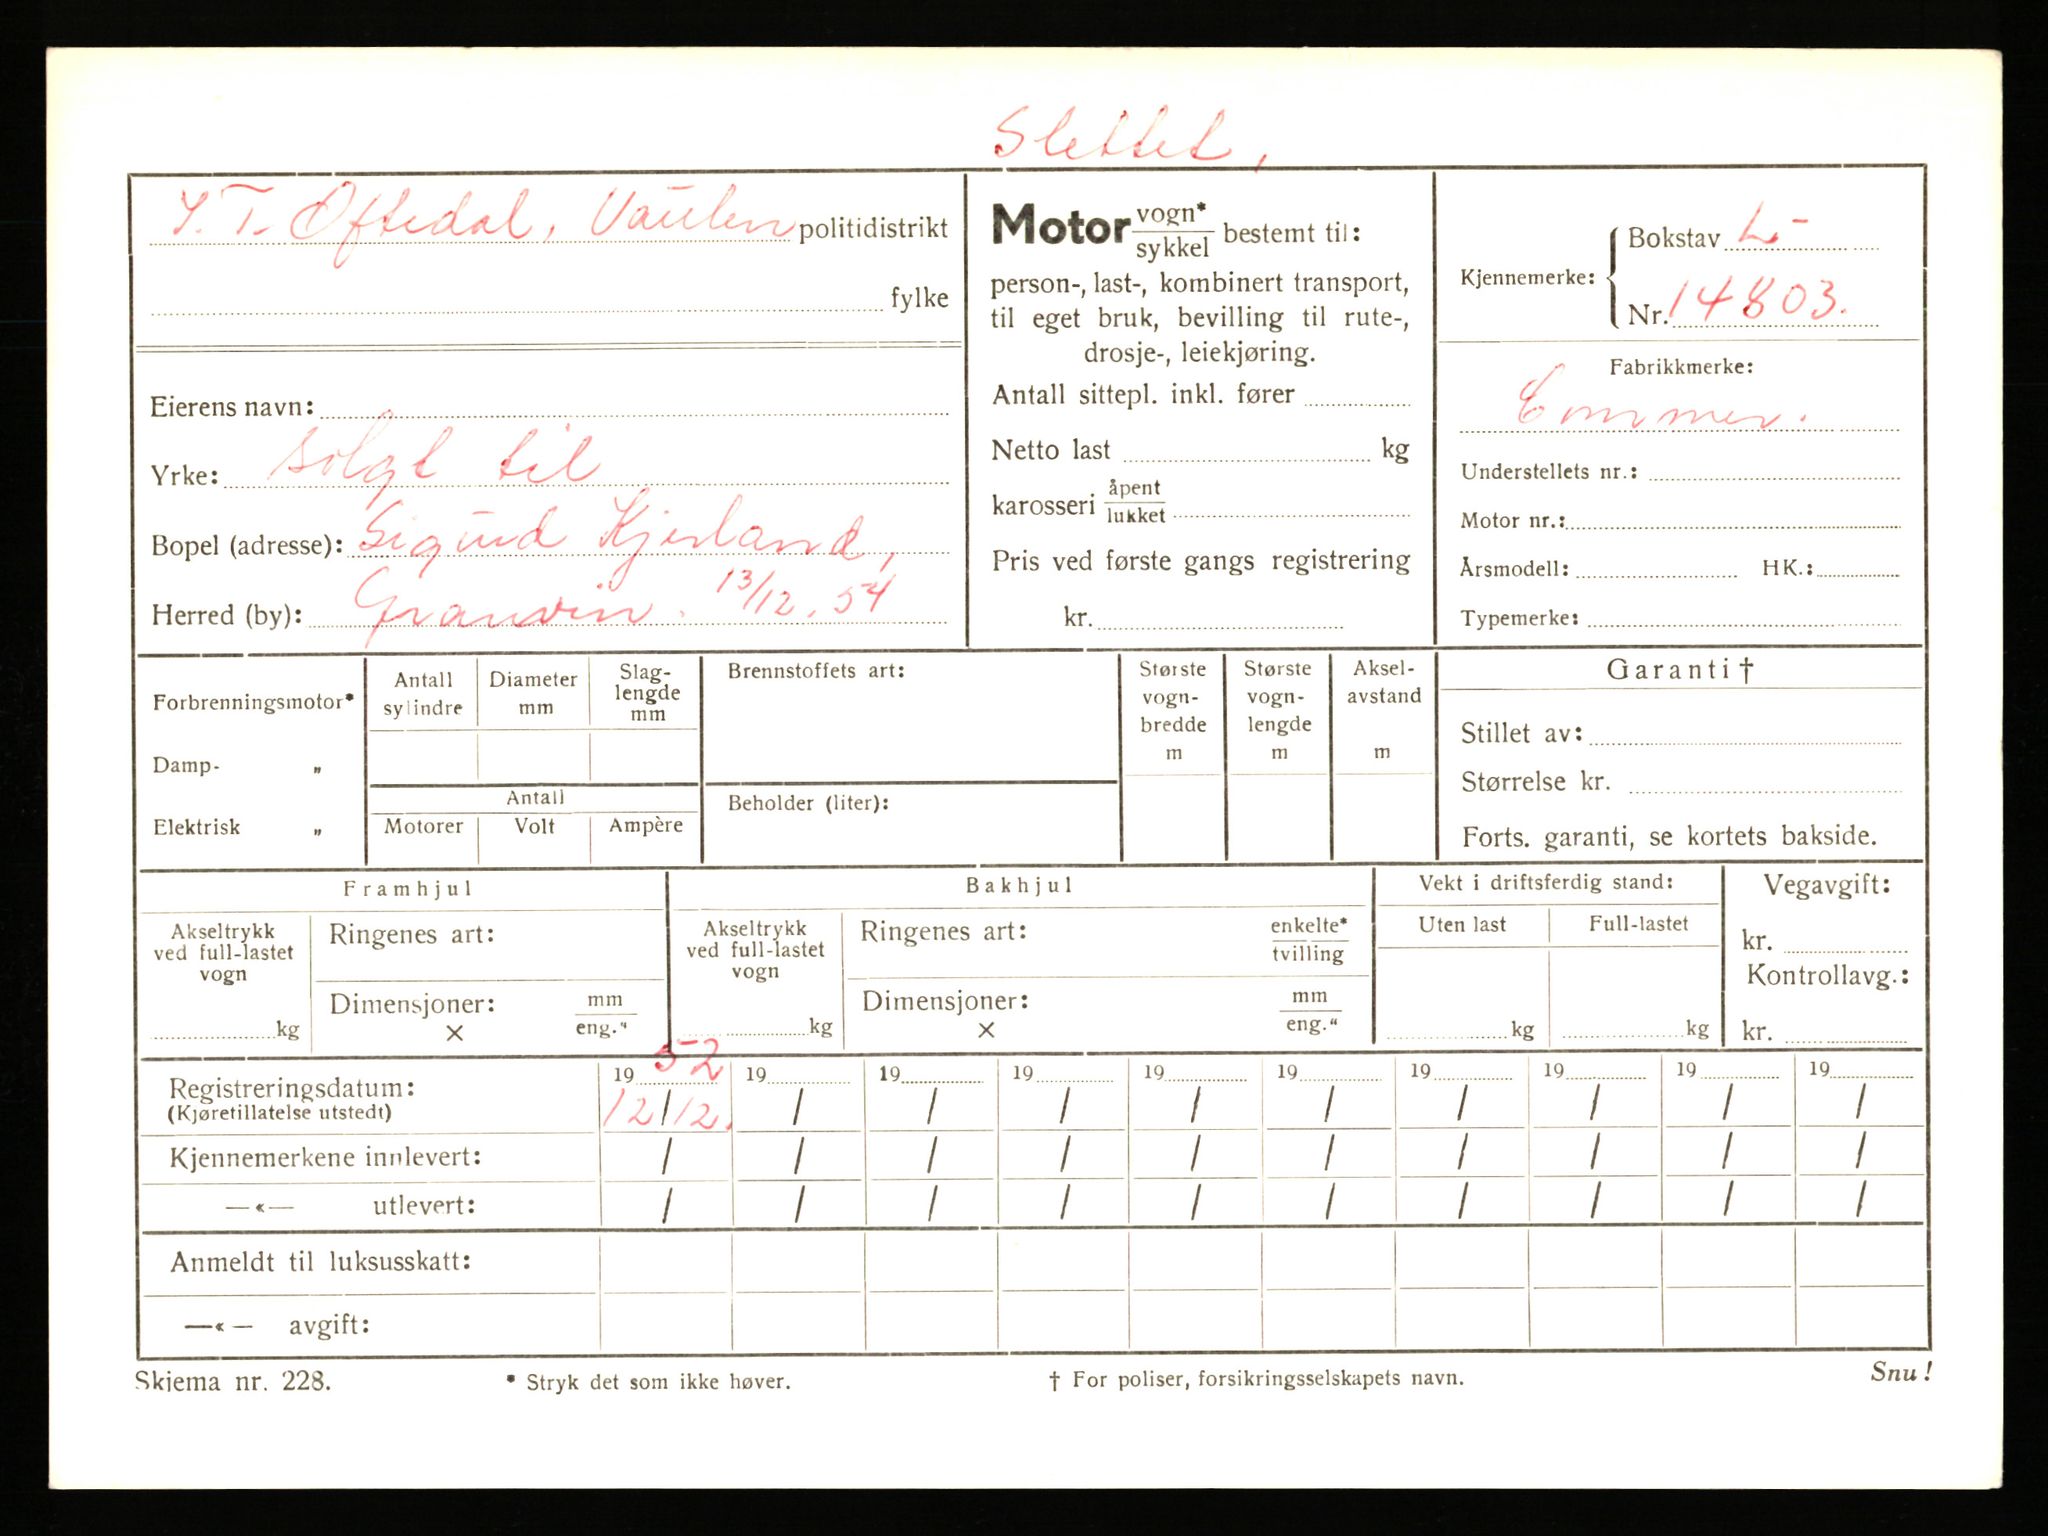 Slettet,
Y. T. Øftedal, Vaulen politidistrikt
fylke
Eierens navn:
Yrke: solgt til
Bopel (adresse): Sigurd Kjerland,
Herred (by): Granvin. 13/12. 54
Motor vogn* / sykkel bestemt til:
person-, last-, kombinert transport,
til eget bruk, bevilling til rute-,
drosje-, leiekjøring.
Antall sittepl. inkl. fører
Netto last kg
karosseri åpent / lukket
Pris ved første gangs registrering
kr.
Kjennemerke: Bokstav L-
Nr. 14803.
Fabrikkmerke:
Commer.
Understellets nr.:
Motor nr.:
Årsmodell: HK.:
Typemerke:
Forbrenningsmotor*
Damp- „
Elektrisk „
Antall sylindre
Diameter mm
Slag-
lengde
mm
Antall
Motorer Volt Ampère
Brennstoffets art:
Beholder (liter):
Største
vogn-
bredde
m
Største
vogn-
lengde
m
Aksel-
avstand
m
Garanti †
Stillet av:
Størrelse kr.
Forts. garanti, se kortets bakside.
Framhjul
Akseltrykk
ved full-lastet
vogn
kg
Ringenes art:
Dimensjoner: mm / eng."
×
Bakhjul
Akseltrykk
ved full-lastet
vogn
kg
Ringenes art: enkelte* / tvilling
Dimensjoner: mm / eng."
×
Vekt i driftsferdig stand:
Uten last Full-lastet
kg kg
Vegavgift:
kr.
Kontrollavg.:
kr.
Registreringsdatum: 1952 19 19 19 19 19 19 19 19 19
(Kjøretillatelse utstedt) 12/12. / / / / / / / / /
Kjennemerkene innlevert: / / / / / / / / / /
—«— utlevert: / / / / / / / / / /
Anmeldt til luksusskatt:
—«— avgift:
Skjema nr. 228.
* Stryk det som ikke høver.
† For poliser, forsikringsselskapets navn.
Snu!